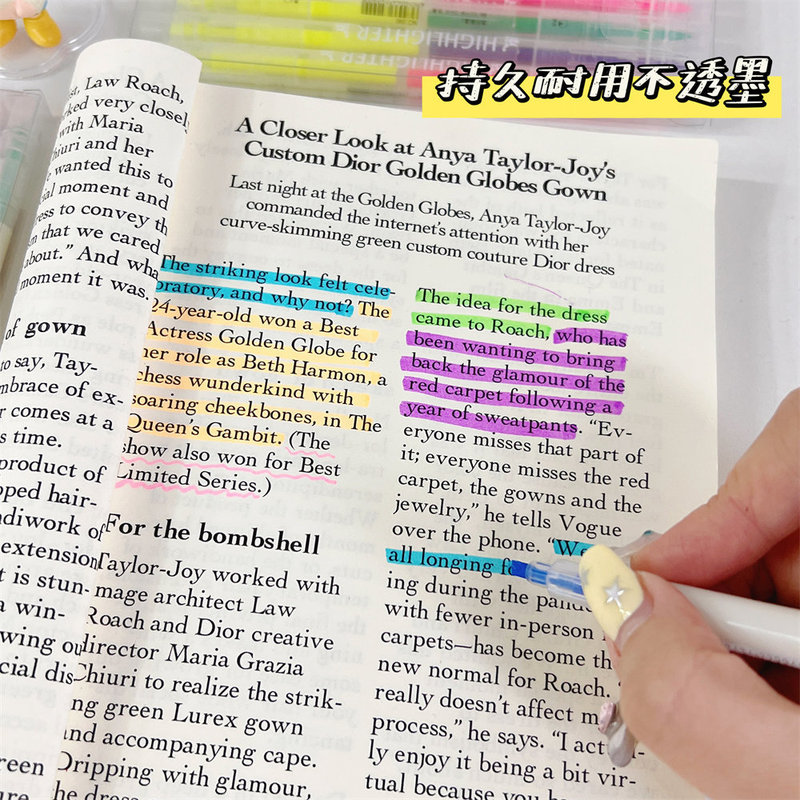 HIGHLIGHTER
HIGHLIGHTER
持久耐用不透墨
Law Roach,
very closely
with Maria
and her
wanted this to
moment and
to convey
that we cared
about." And
moment it was.
of gown
to say, Tay-
of ex-
comes at a
time.
product of
hair-
of
extension
t is stun-
a win-
A Closer Look at Anya Taylor-Joy's
Custom Dior Golden Globes Gown
Last night at the Golden Globes, Anya Taylor-Joy
commanded the internet's attention with her
curve-skimming green custom couture Dior dress
The striking look felt cele-
oratory, and why not? The
24-year-old won a Best
Actress Golden Globe for
her role as Beth Harmon, a
chess wunderkind with
soaring cheekbones, in The
Queen's Gambit. (The
show also won for Best
Limited Series.)
For the bombshell
Taylor-Joy worked with
mage architect Law
Roach and Dior creative
director Maria Grazia
Chiuri to realize the strik-
ng green Lurex gown
and accompanying cape.
Dripping with glamour,
he dress
The idea for the dress
came to Roach, who has
been wanting to bring
back the glamour of the
red carpet following a
year of sweatpants. "Ev-
eryone misses that part of
it; everyone misses the red
carpet, the gowns and the
jewelry," he tells Vogue
over the phone. "We
all longing fo
ing during the pande
with fewer in-person
carpets—has become th
new normal for Roach.
really doesn't affect m
process," he says. "I act
ly enjoy it being a bit vir-
tual because you